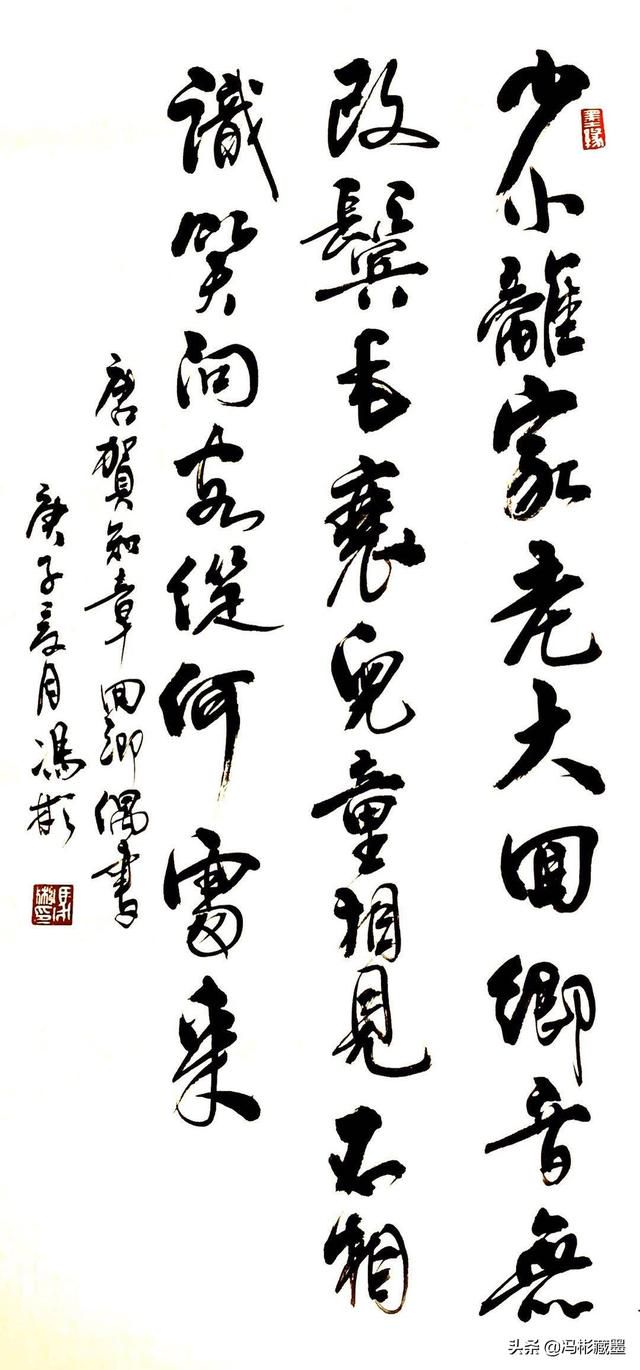 墨缘
少小離家老大回鄉音無
改鬢毛衰兒童相見不相
識笑問客從何處來
唐賀知章回鄉偶書
庚子夏月馮彬
头条 @冯彬藏墨